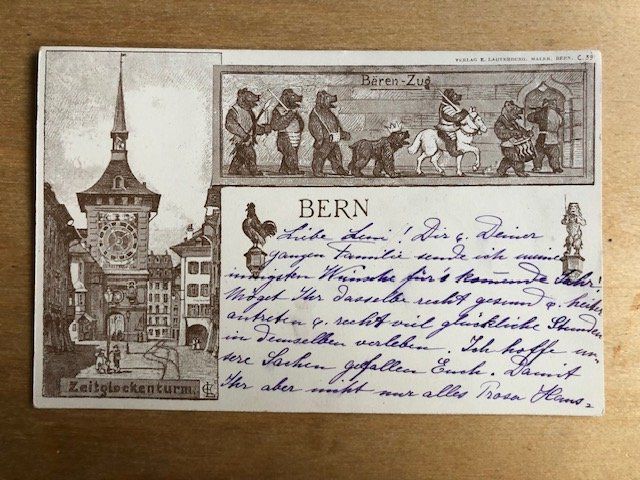 VERLAG E. LAUTERBURG, MALER, BERN. C. 39
Bären-Zug
BERN
Liebe Leni! Dir & Deiner
ganzen Familie sende ich meine
innigsten Wünsche für's kommende Jahr!
Möget Ihr dasselbe recht gesund & heiter
antreten & recht viel glückliche Stunden
in demselben verleben. Ich hoffe un-
sere Sachen gefallen Euch. Damit
Ihr aber nicht nur alles Prosa Haus=
Zeitglockenturm.